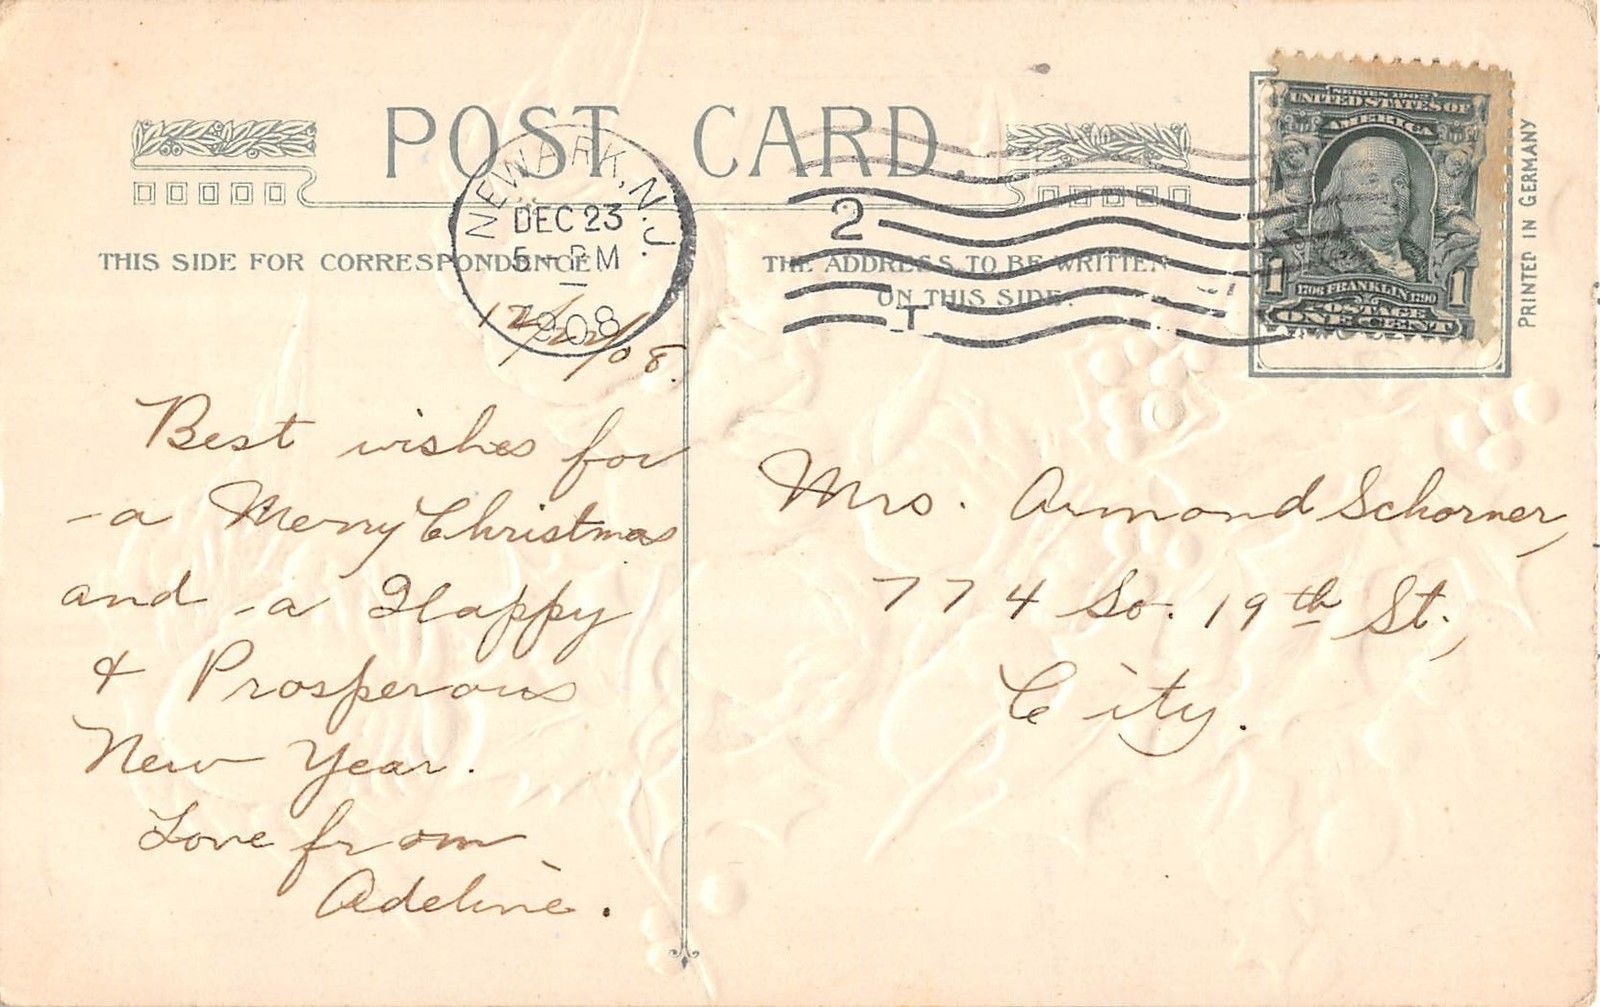 POST CARD.
THIS SIDE FOR CORRESPONDENCE
THE ADDRESS TO BE WRITTEN
ON THIS SIDE.
NEWARK, N.J.
DEC 23
5 - PM
1908
2
T
SERIES 1902
UNITED STATES OF
AMERICA
1706 FRANKLIN 1790
POSTAGE
1 ONE CENT 1
PRINTED IN GERMANY
12/22/08.
Best wishes for
a Merry Christmas
and a Happy
& Prosperous
New Year.
Love from
Adeline.
Mrs. Armond Schorner,
774 So. 19th St.,
City.